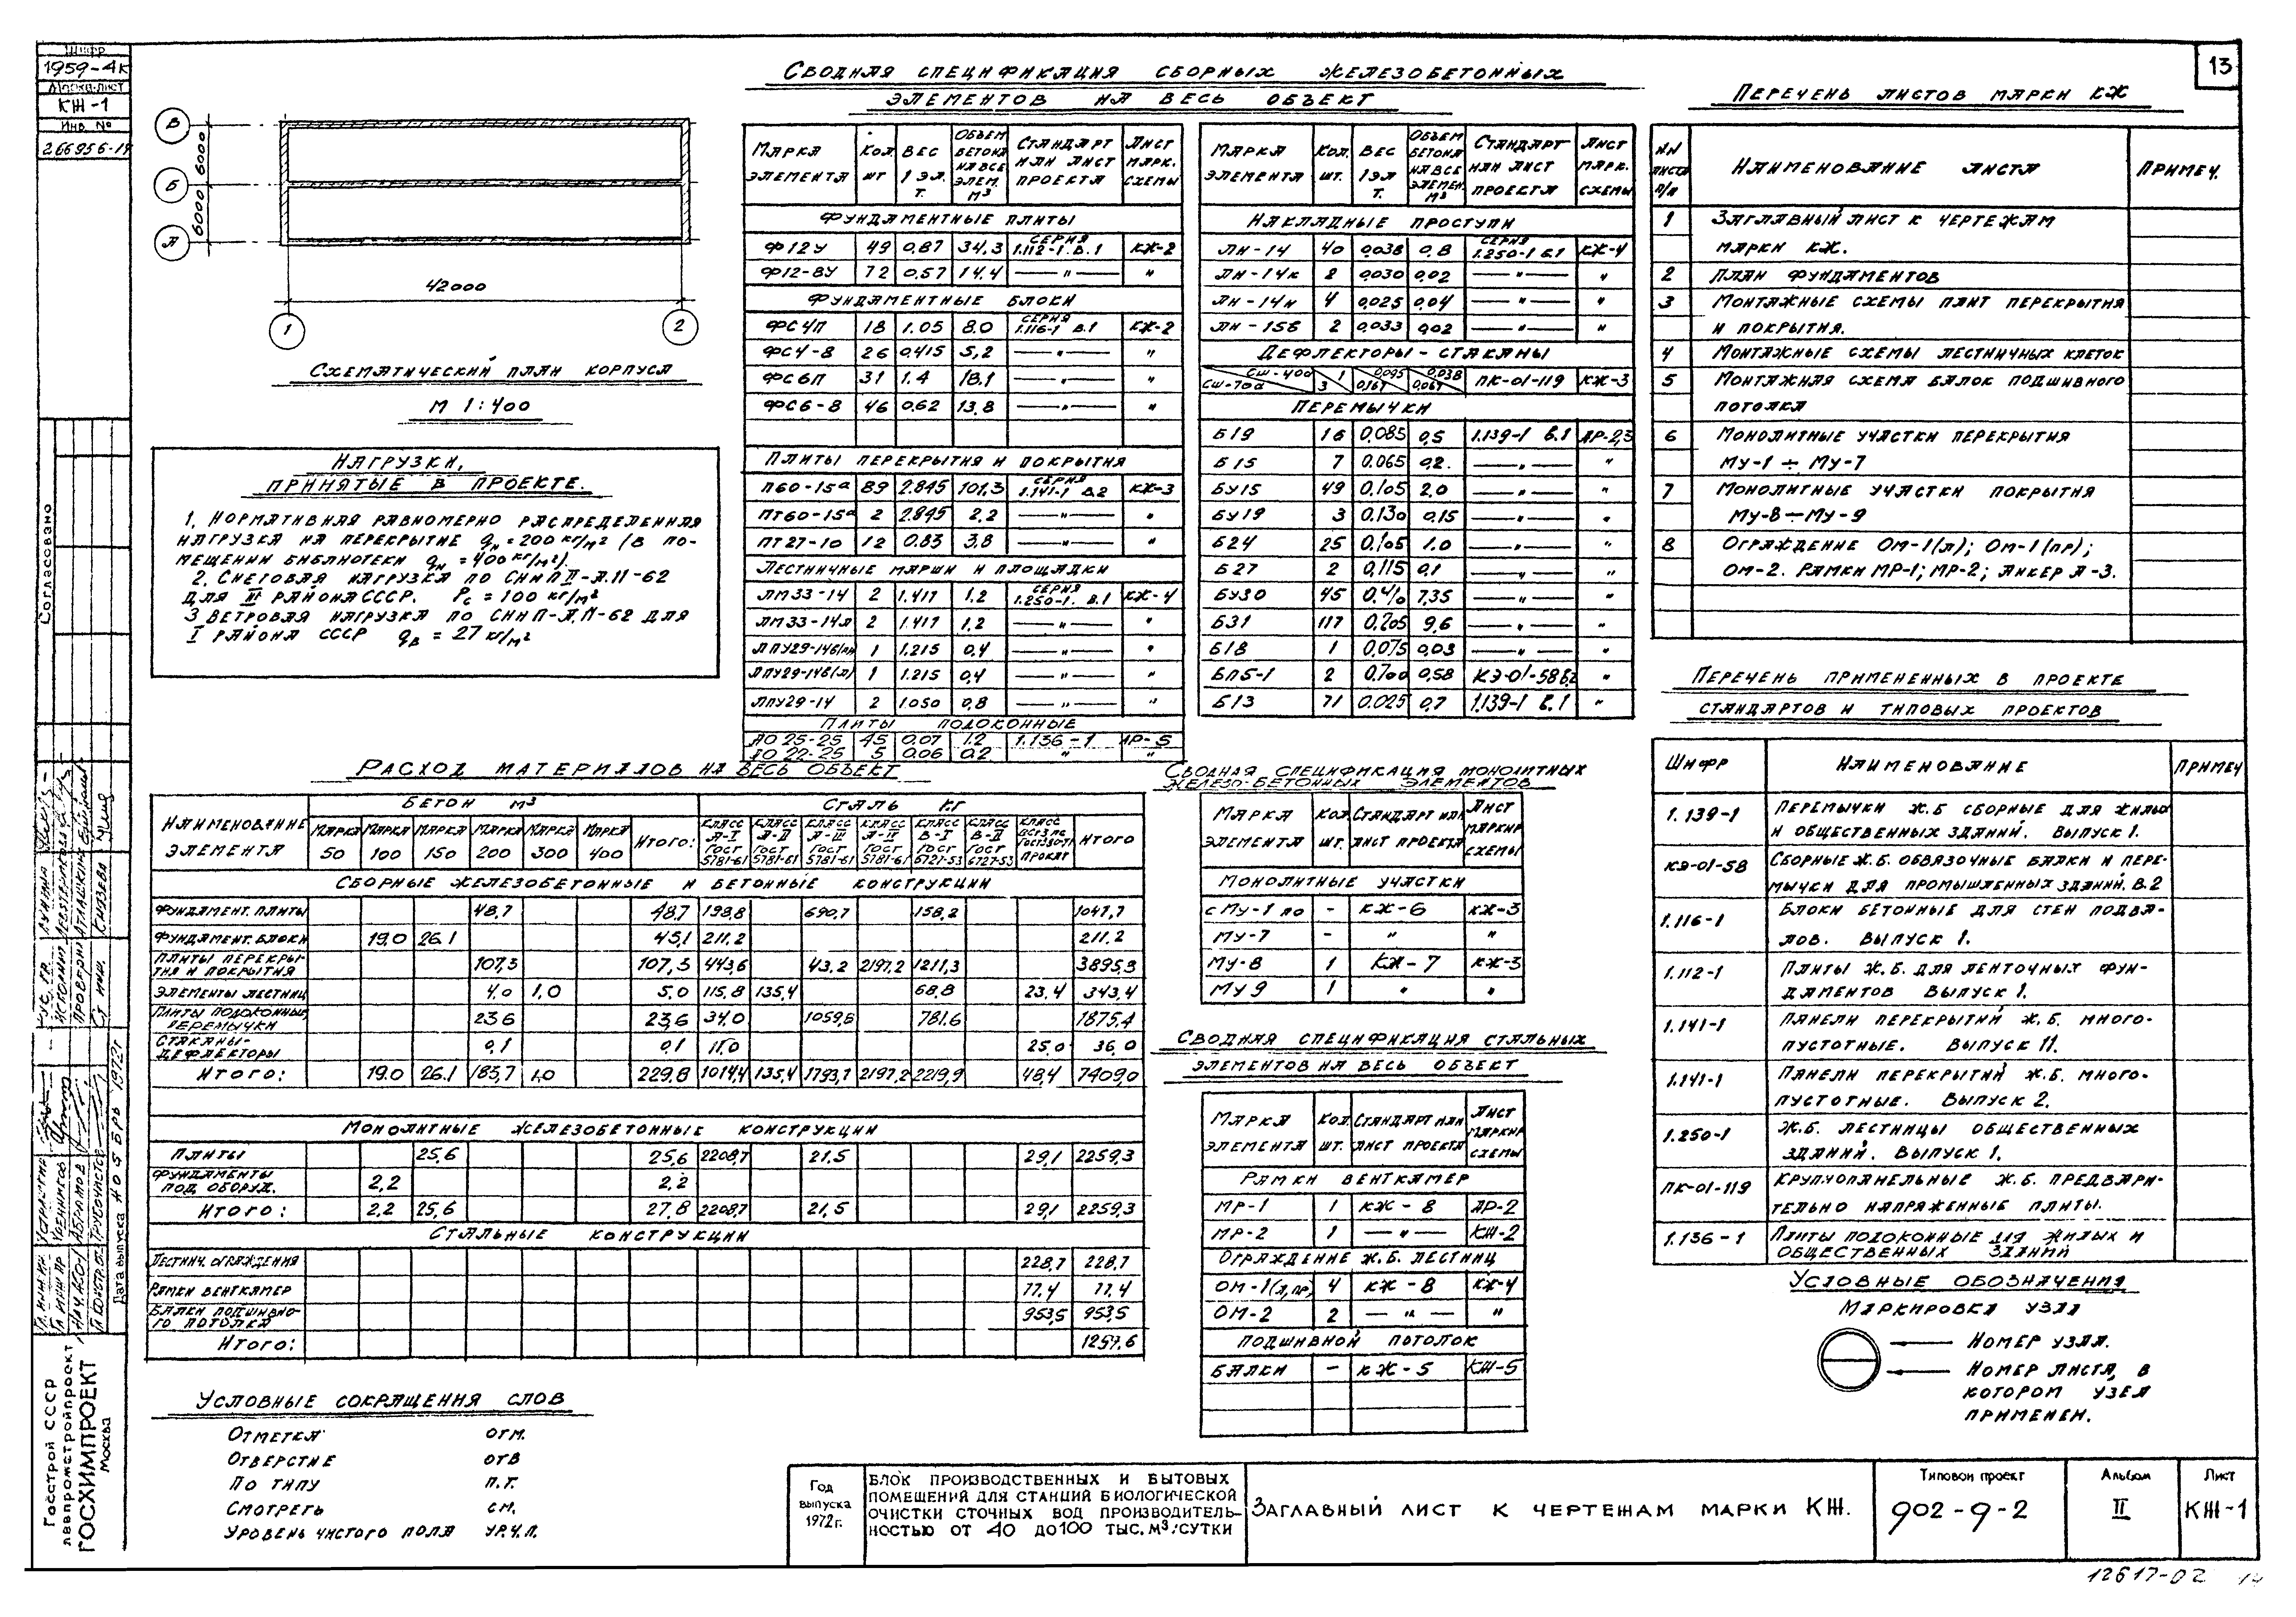 13
Шифр
1959-4к
Марка-лист
КЖ-1
Инв. №
266956-19
Согласовано
В
Б
А
6000
6000
42000
1
2
Схематический план корпуса
М 1:400
Нагрузки,
принятые в проекте.
1. Нормативная равномерно распределенная
нагрузка на перекрытие qн = 200 кг/м² (в по-
мещении библиотеки qн = 400 кг/м²).
2. Снеговая нагрузка по СНиП II-А.11-62
для III района СССР. Рс = 100 кг/м²
3. Ветровая нагрузка по СНиП-А.11-62 для
I района СССР qв = 27 кг/м²
Сводная спецификация сборных железобетонных
элементов на весь объект
Марка элемента | Кол. шт | Вес 1 эл. т. | Объем бетона на все элем. м³ | Стандарт или лист проекта | Лист марк. схемы
Фундаментные плиты
Ф12у 49 0,87 34,3 серия 1.112-1. в.1 КЖ-2
Ф12-8у 72 0,57 14.4 —"— "
Фундаментные блоки
ФС4П 18 1.05 8.0 серия 1.116-1 в.1 КЖ-2
ФС4-8 26 0.415 5,2 —"— "
ФС6П 31 1.4 18.1 —"— "
ФС6-8 46 0.62 13.8 —"— "
Плиты перекрытия и покрытия
П60-15а 89 2.845 101,3 серия 1.141-1 в2 КЖ-3
ПТ60-15а 2 2.895 2.2 —"— "
ПТ27-10 12 0.83 3.8 —"— "
Лестничные марши и площадки
ЛМ33-14 2 1.417 1.2 серия 1.250-1. в.1 КЖ-4
ЛМ33-14л 2 1.417 1.2 —"— "
ЛПУ29-14б(пр) 1 1.215 0.4 —"— "
ЛПУ29-14б(л) 1 1.215 0,4 —"— "
ЛПУ29-14 2 1.050 0,8 —"— "
Плиты подоконные
ПО 25-25 45 0.07 1.2 1.136-1 АР-5
ПО 22-25 5 0.06 0.2 " "
Марка элемента | Кол. шт. | Вес 1 эл т. | Объем бетона на все элемен. м³ | Стандарт или лист проекта | Лист марк. схемы
Накладные проступи
ЛН-14 40 0,038 0,8 серия 1.250-1 в.1 КЖ-4
ЛН-14к 2 0,030 0,02 —"— "
ЛН-14н 4 0,025 0,04 —"— "
ЛН-15в 2 0,033 0,02 —"— "
Дефлекторы-стаканы
СШ-400 1 0,095 0,038
СШ-700 3 0,167 0,067 ПК-01-119 КЖ-3
Перемычки
Б19 16 0.085 0,5 1.139-1 в.1 АР-2,3
Б15 7 0.065 0,2. —"— "
БУ15 49 0.105 2.0 —"— "
БУ19 3 0.130 0,15 —"— "
Б24 25 0.105 1.0 —"— "
Б27 2 0,115 0,1 —"— "
БУ30 45 0.410 7,35 —"— "
Б31 117 0.205 9,6 —"— "
Б18 1 0,075 0,03 —"— "
БП5-1 2 0.700 0,58 КЭ-01-58 в.2 "
Б13 71 0.025 0,7 1.139-1 в.1 "
Перечень листов марки КЖ
NN листа п/п | Наименование листа | Примеч.
1 Заглавный лист к чертежам
марки КЖ.
2 План фундаментов
3 Монтажные схемы плит перекрытия
и покрытия.
4 Монтажные схемы лестничных клеток
5 Монтажная схема балок подшивного
потолка
6 Монолитные участки перекрытия
Му-1 ÷ Му-7
7 Монолитные участки покрытия
Му-8 ÷ Му-9
8 Ограждение ОМ-1(л); ОМ-1(пр);
ОМ-2. Рамки МР-1; МР-2; Анкер А-3.
Перечень примененных в проекте
стандартов и типовых проектов
Шифр | Наименование | Примеч
1.139-1 Перемычки ж.б сборные для жилых
и общественных зданий. Выпуск 1.
КЭ-01-58 Сборные ж.б. обвязочные балки и пере-
мычки для промышленных зданий. В.2
1.116-1 Блоки бетонные для стен подва-
лов. Выпуск 1.
1.112-1 Плиты ж.б. для ленточных фун-
даментов Выпуск 1.
1.141-1 Панели перекрытий ж.б. много-
пустотные. Выпуск 11.
1.141-1 Панели перекрытий ж.б. много-
пустотные. Выпуск 2.
1.250-1 Ж.б. лестницы общественных
зданий. Выпуск 1.
ПК-01-119 Крупнопанельные ж.б. предвари-
тельно напряженные плиты.
1.136-1 Плиты подоконные для жилых и
общественных зданий
Условные обозначения
Маркировка узла
Номер узла.
Номер листа, в
котором узел
применен.
Расход материалов на весь объект
Наименование элемента | Бетон м³ | Сталь кг
Марка 50 | Марка 100 | Марка 150 | Марка 200 | Марка 300 | Марка 400 | Итого: | Класс А-I ГОСТ 5781-61 | Класс А-II ГОСТ 5781-61 | Класс А-III ГОСТ 5781-61 | Класс ГОСТ 5781-61 | Класс В-I ГОСТ 6727-53 | Класс В-II ГОСТ 6727-53 | Класс прокат | Итого
Сборные железобетонные и бетонные конструкции
Фундамент. плиты 48,7 48,7 198,8 690,7 158,2 1047,7
Фундамент. блоки 19.0 26.1 45,1 211.2 211.2
Плиты перекры-
тия и покрытия 107,3 107,3 443,6 43.2 2197,2 1211,3 3895,3
Элементы лестниц 4.0 1,0 5,0 115,8 135,4 68,8 23,4 343,4
Плиты подоконные,
перемычки 23.6 23,6 34.0 1059,8 781.6 1875,4
Стаканы-
дефлекторы 0,1 0,1 11.0 25.0 36.0
Итого: 19.0 26.1 183,7 1.0 229.8 1014,4 135,4 1793,7 2197,2 2219,9 48,4 7409,0
Монолитные железобетонные конструкции
Плиты 25,6 25,6 2208,7 21.5 29,1 2259,3
Фундаменты
под оборуд. 2,2 2,2
Итого: 2,2 25,6 27.8 2208,7 21,5 29,1 2259,3
Стальные конструкции
Лестнич. ограждения 228,7 228,7
Рамки венткамер 77.4 77.4
Балки подшивно-
го потолка 953,5 953,5
Итого: 1259,6
Сводная спецификация монолитных
железо-бетонных элементов
Марка элемента | Кол. шт. | Стандарт или лист проекта | Лист маркир схемы
Монолитные участки
с Му-1 по - КЖ-6 КЖ-3
Му-7 - " "
Му-8 1 КЖ-7 КЖ-3
Му 9 1 " "
Сводная спецификация стальных
элементов на весь объект
Марка элемента | Кол. шт. | Стандарт или лист проекта | Лист маркир схемы
Рамки венткамер
МР-1 1 КЖ-8 АР-2
МР-2 1 —"— КЖ-2
Ограждение ж.б. лестниц
ОМ-1(л,пр) 4 КЖ-8 КЖ-4
ОМ-2 2 —"— "
Подшивной потолок
Балки - КЖ-5 КЖ-5
Условные сокращения слов
Отметка отм.
Отверстие отв
По типу п.т.
Смотреть см.
Уровень чистого пола ур.ч.п.
Госстрой СССР
Главпромстройпроект
ГОСХИМПРОЕКТ
Москва
Дата выпуска
1972г
Год
выпуска
1972г.
Блок производственных и бытовых
помещений для станций биологической
очистки сточных вод производитель-
ностью от 40 до 100 тыс. м³/сутки
Заглавный лист к чертежам марки КЖ.
Типовой проект
902-9-2
Альбом
II
Лист
КЖ-1
12617-02 14